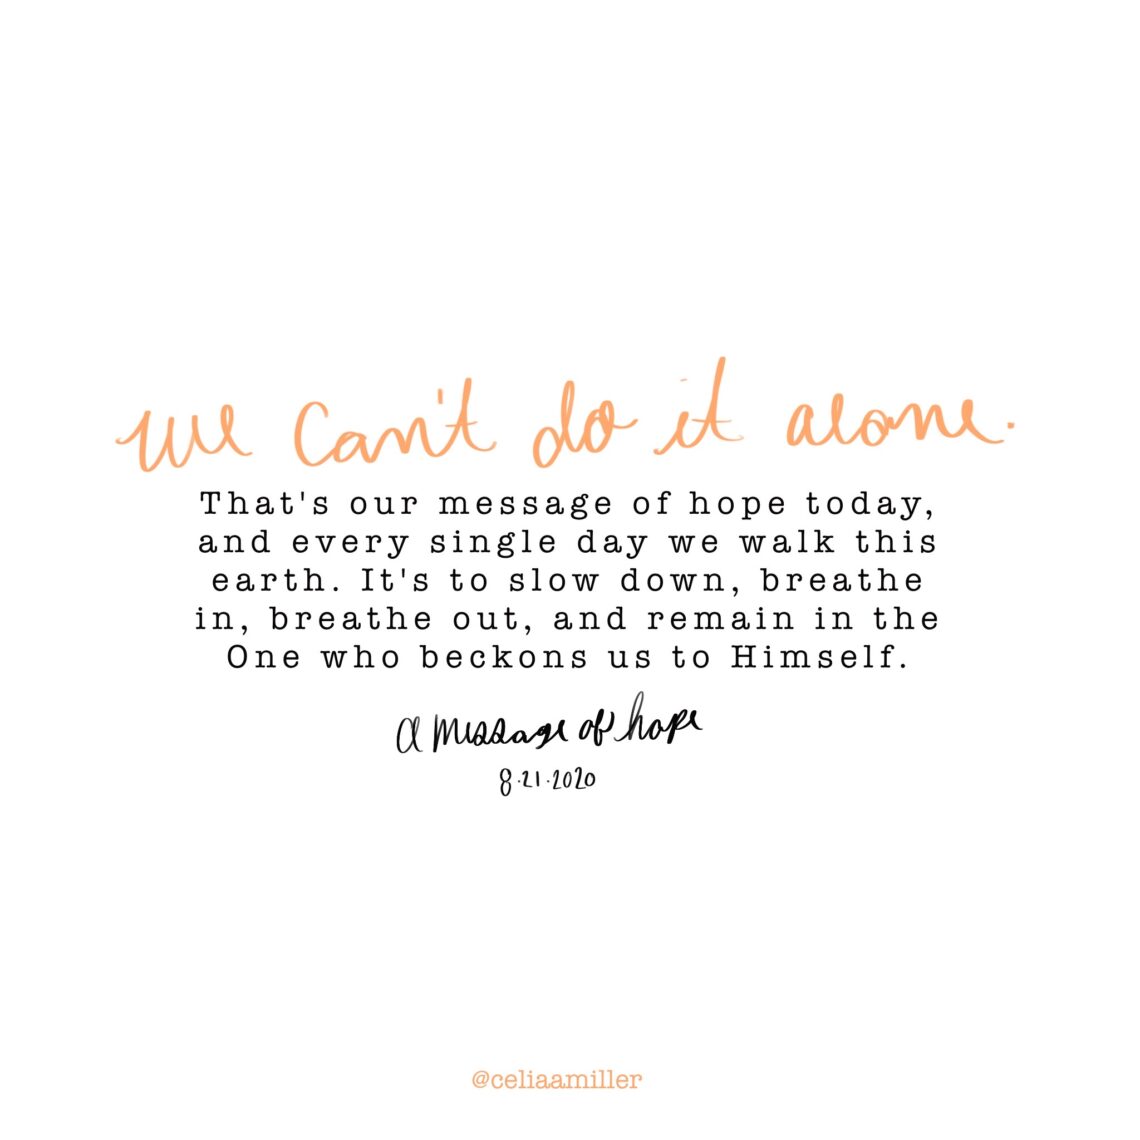 we can't do it alone.
That's our message of hope today,
and every single day we walk this
earth. It's to slow down, breathe
in, breathe out, and remain in the
One who beckons us to Himself.
a message of hope
8.21.2020
@celiaamiller